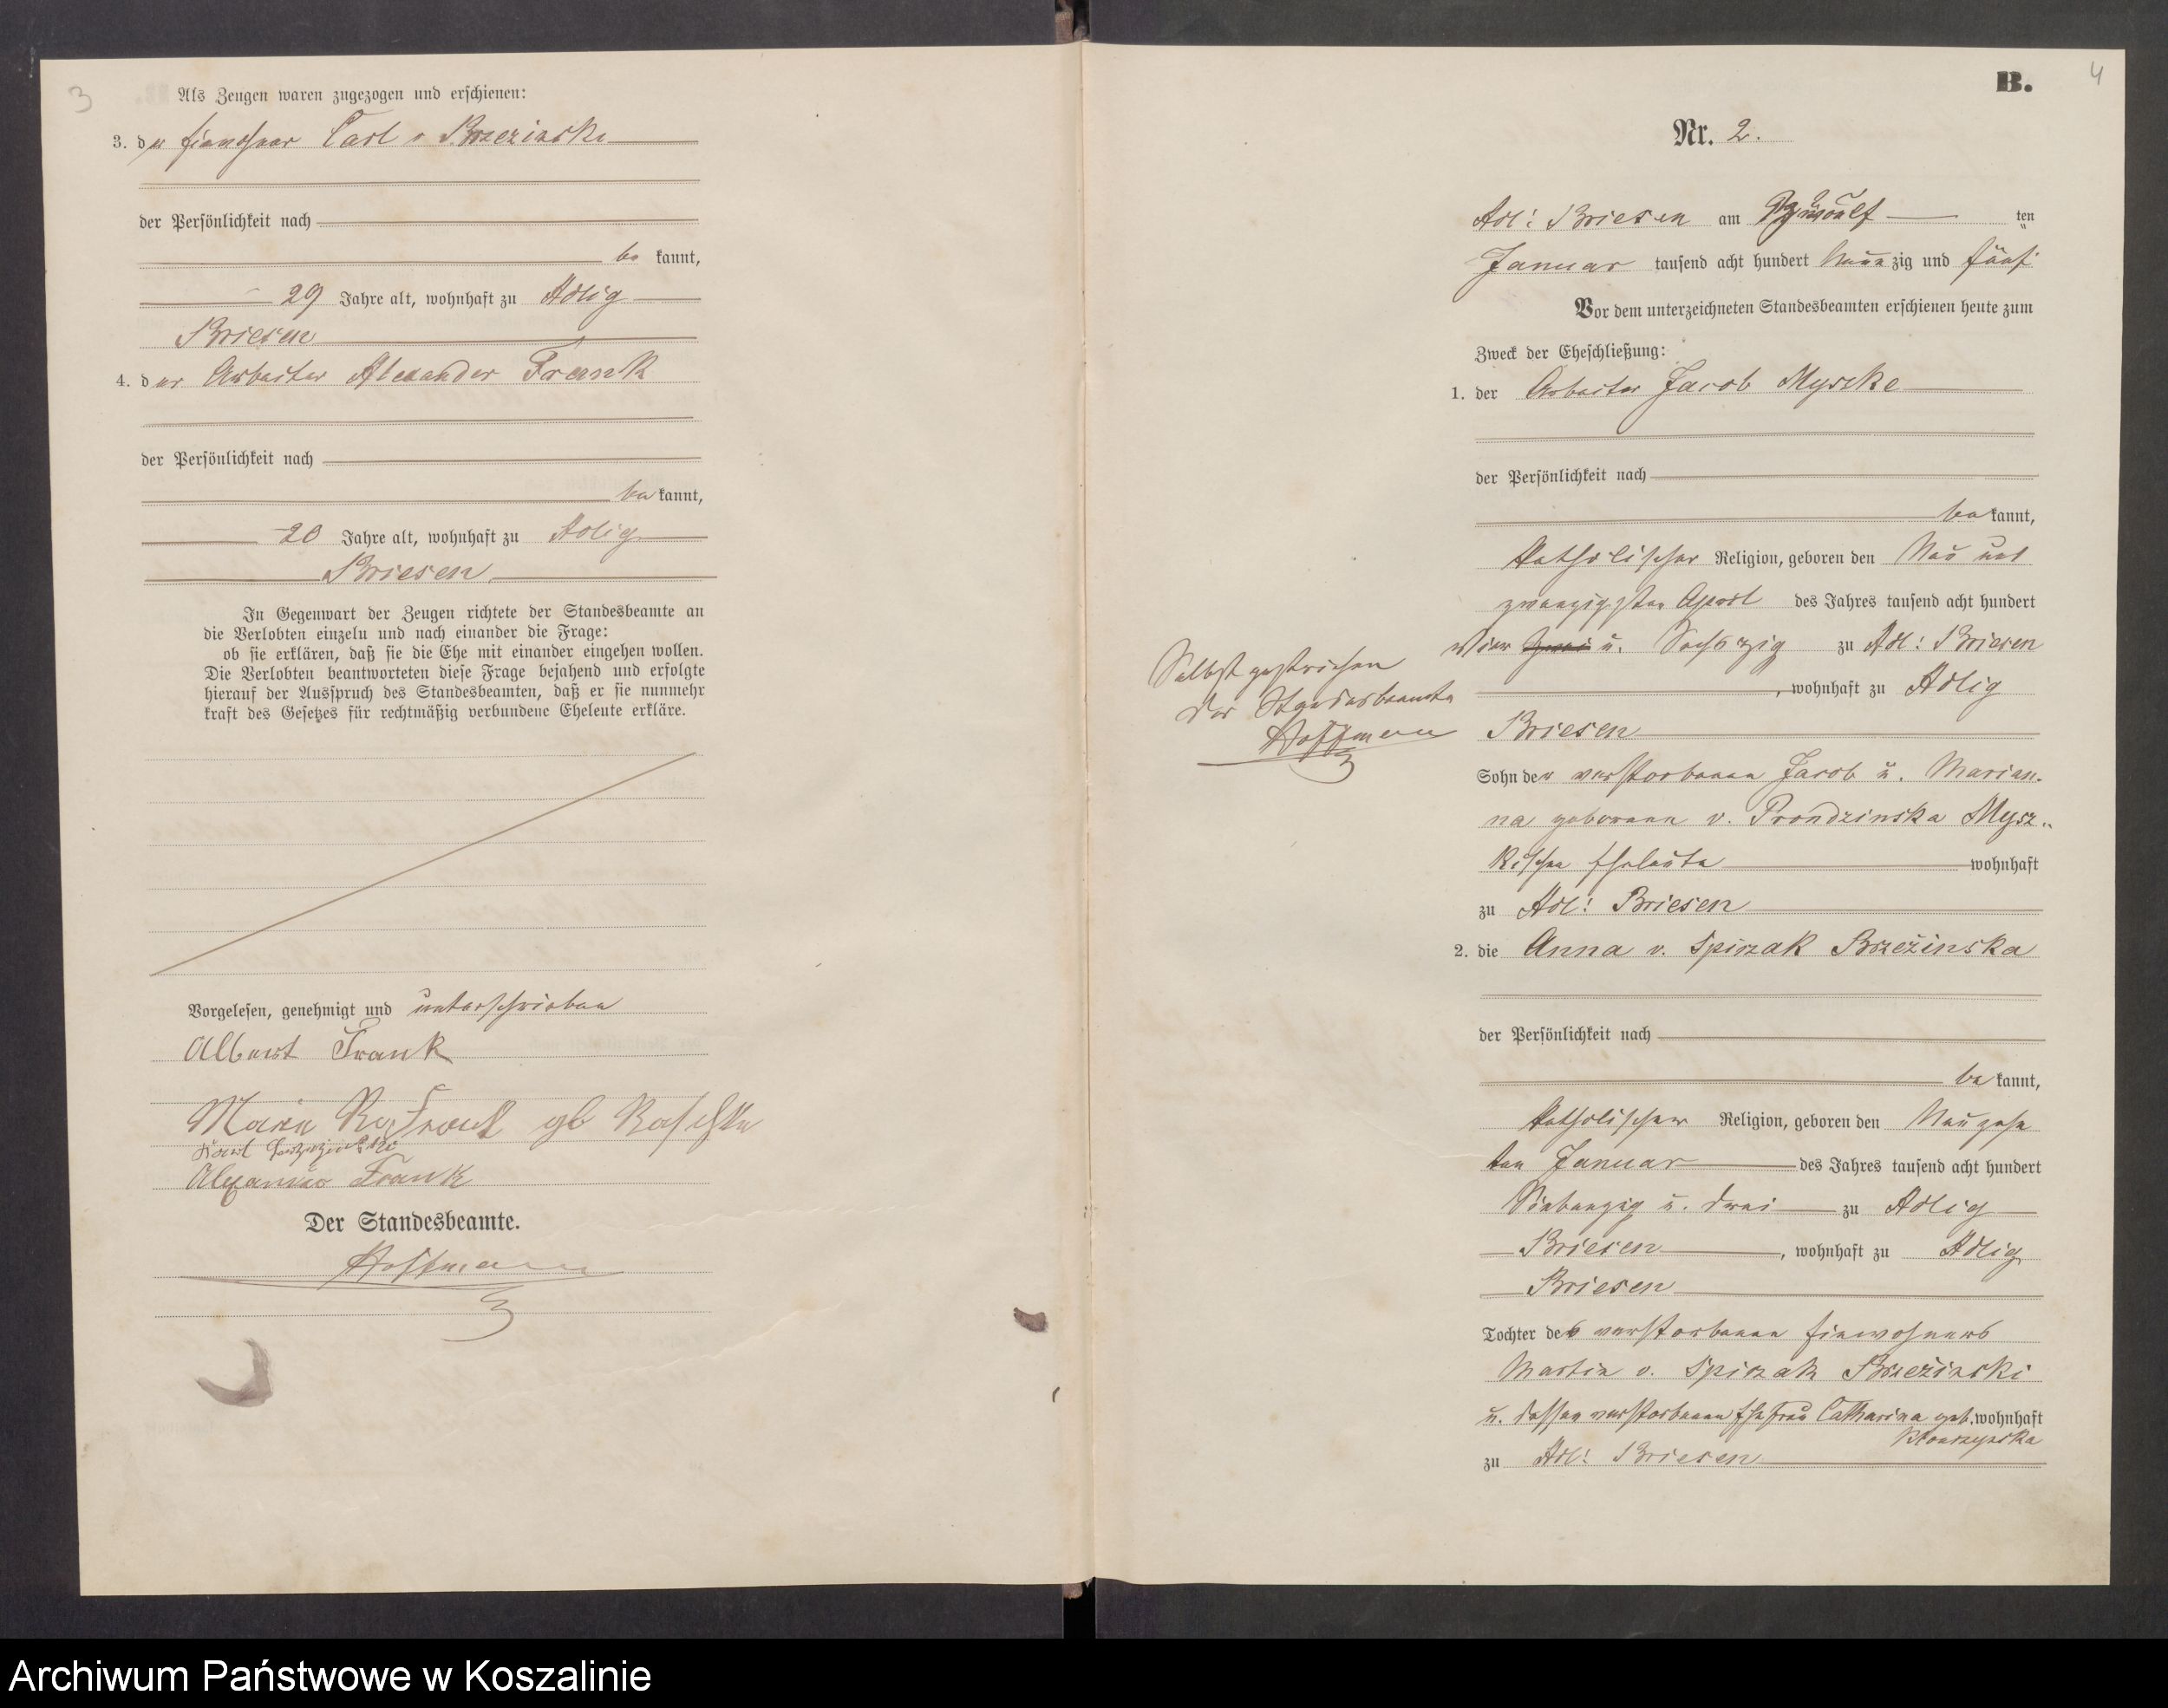 3
Als Zeugen waren zugezogen und erschienen:
3. der Einwohner Carl v. Brzezinski
der Persönlichkeit nach
be kannt,
29 Jahre alt, wohnhaft zu Adlig
Briesen
4. der Arbeiter Alexander Frank
der Persönlichkeit nach
be kannt,
20 Jahre alt, wohnhaft zu Adlig
Briesen
In Gegenwart der Zeugen richtete der Standesbeamte an
die Verlobten einzeln und nach einander die Frage:
ob sie erklären, daß sie die Ehe mit einander eingehen wollen.
Die Verlobten beantworteten diese Frage bejahend und erfolgte
hierauf der Ausspruch des Standesbeamten, daß er sie nunmehr
kraft des Gesetzes für rechtmäßig verbundene Eheleute erkläre.
Vorgelesen, genehmigt und unterschrieben
Albert Frank
Maria Frank gb Raschke
Karl
Alexander Frank
Der Standesbeamte.
Hoffmann
4
B.
Nr. 2.
Adl: Briesen am Zwölf ten
Januar tausend acht hundert Neun zig und fünf
Vor dem unterzeichneten Standesbeamten erschienen heute zum
Zweck der Eheschließung:
1. der Arbeiter Jacob Myszke
der Persönlichkeit nach
be kannt,
Katholischer Religion, geboren den Neun und
zwanzigsten April des Jahres tausend acht hundert
vier u. Sechszig zu Adl: Briesen
, wohnhaft zu Adlig
Briesen
Selbst gestrichen
Der Standesbeamte
Hoffmann
Sohn der verstorbenen Jacob u. Marian-
na geborenen v. Prondzinska Mysz-
kischen Eheleute wohnhaft
zu Adl: Briesen
2. die Anna v. Spiczak Brzezinska
der Persönlichkeit nach
be kannt,
Katholischer Religion, geboren den Neunzehn
ten Januar des Jahres tausend acht hundert
Siebenzig u. drei zu Adlig
Briesen, wohnhaft zu Adlig
Briesen
Tochter des verstorbenen Einwohners
Martin v. Spiczak Brzezinski
u. dessen verstorbenen Ehefrau Catharina geb. wohnhaft
zu Adl: Briesen
Archiwum Państwowe w Koszalinie